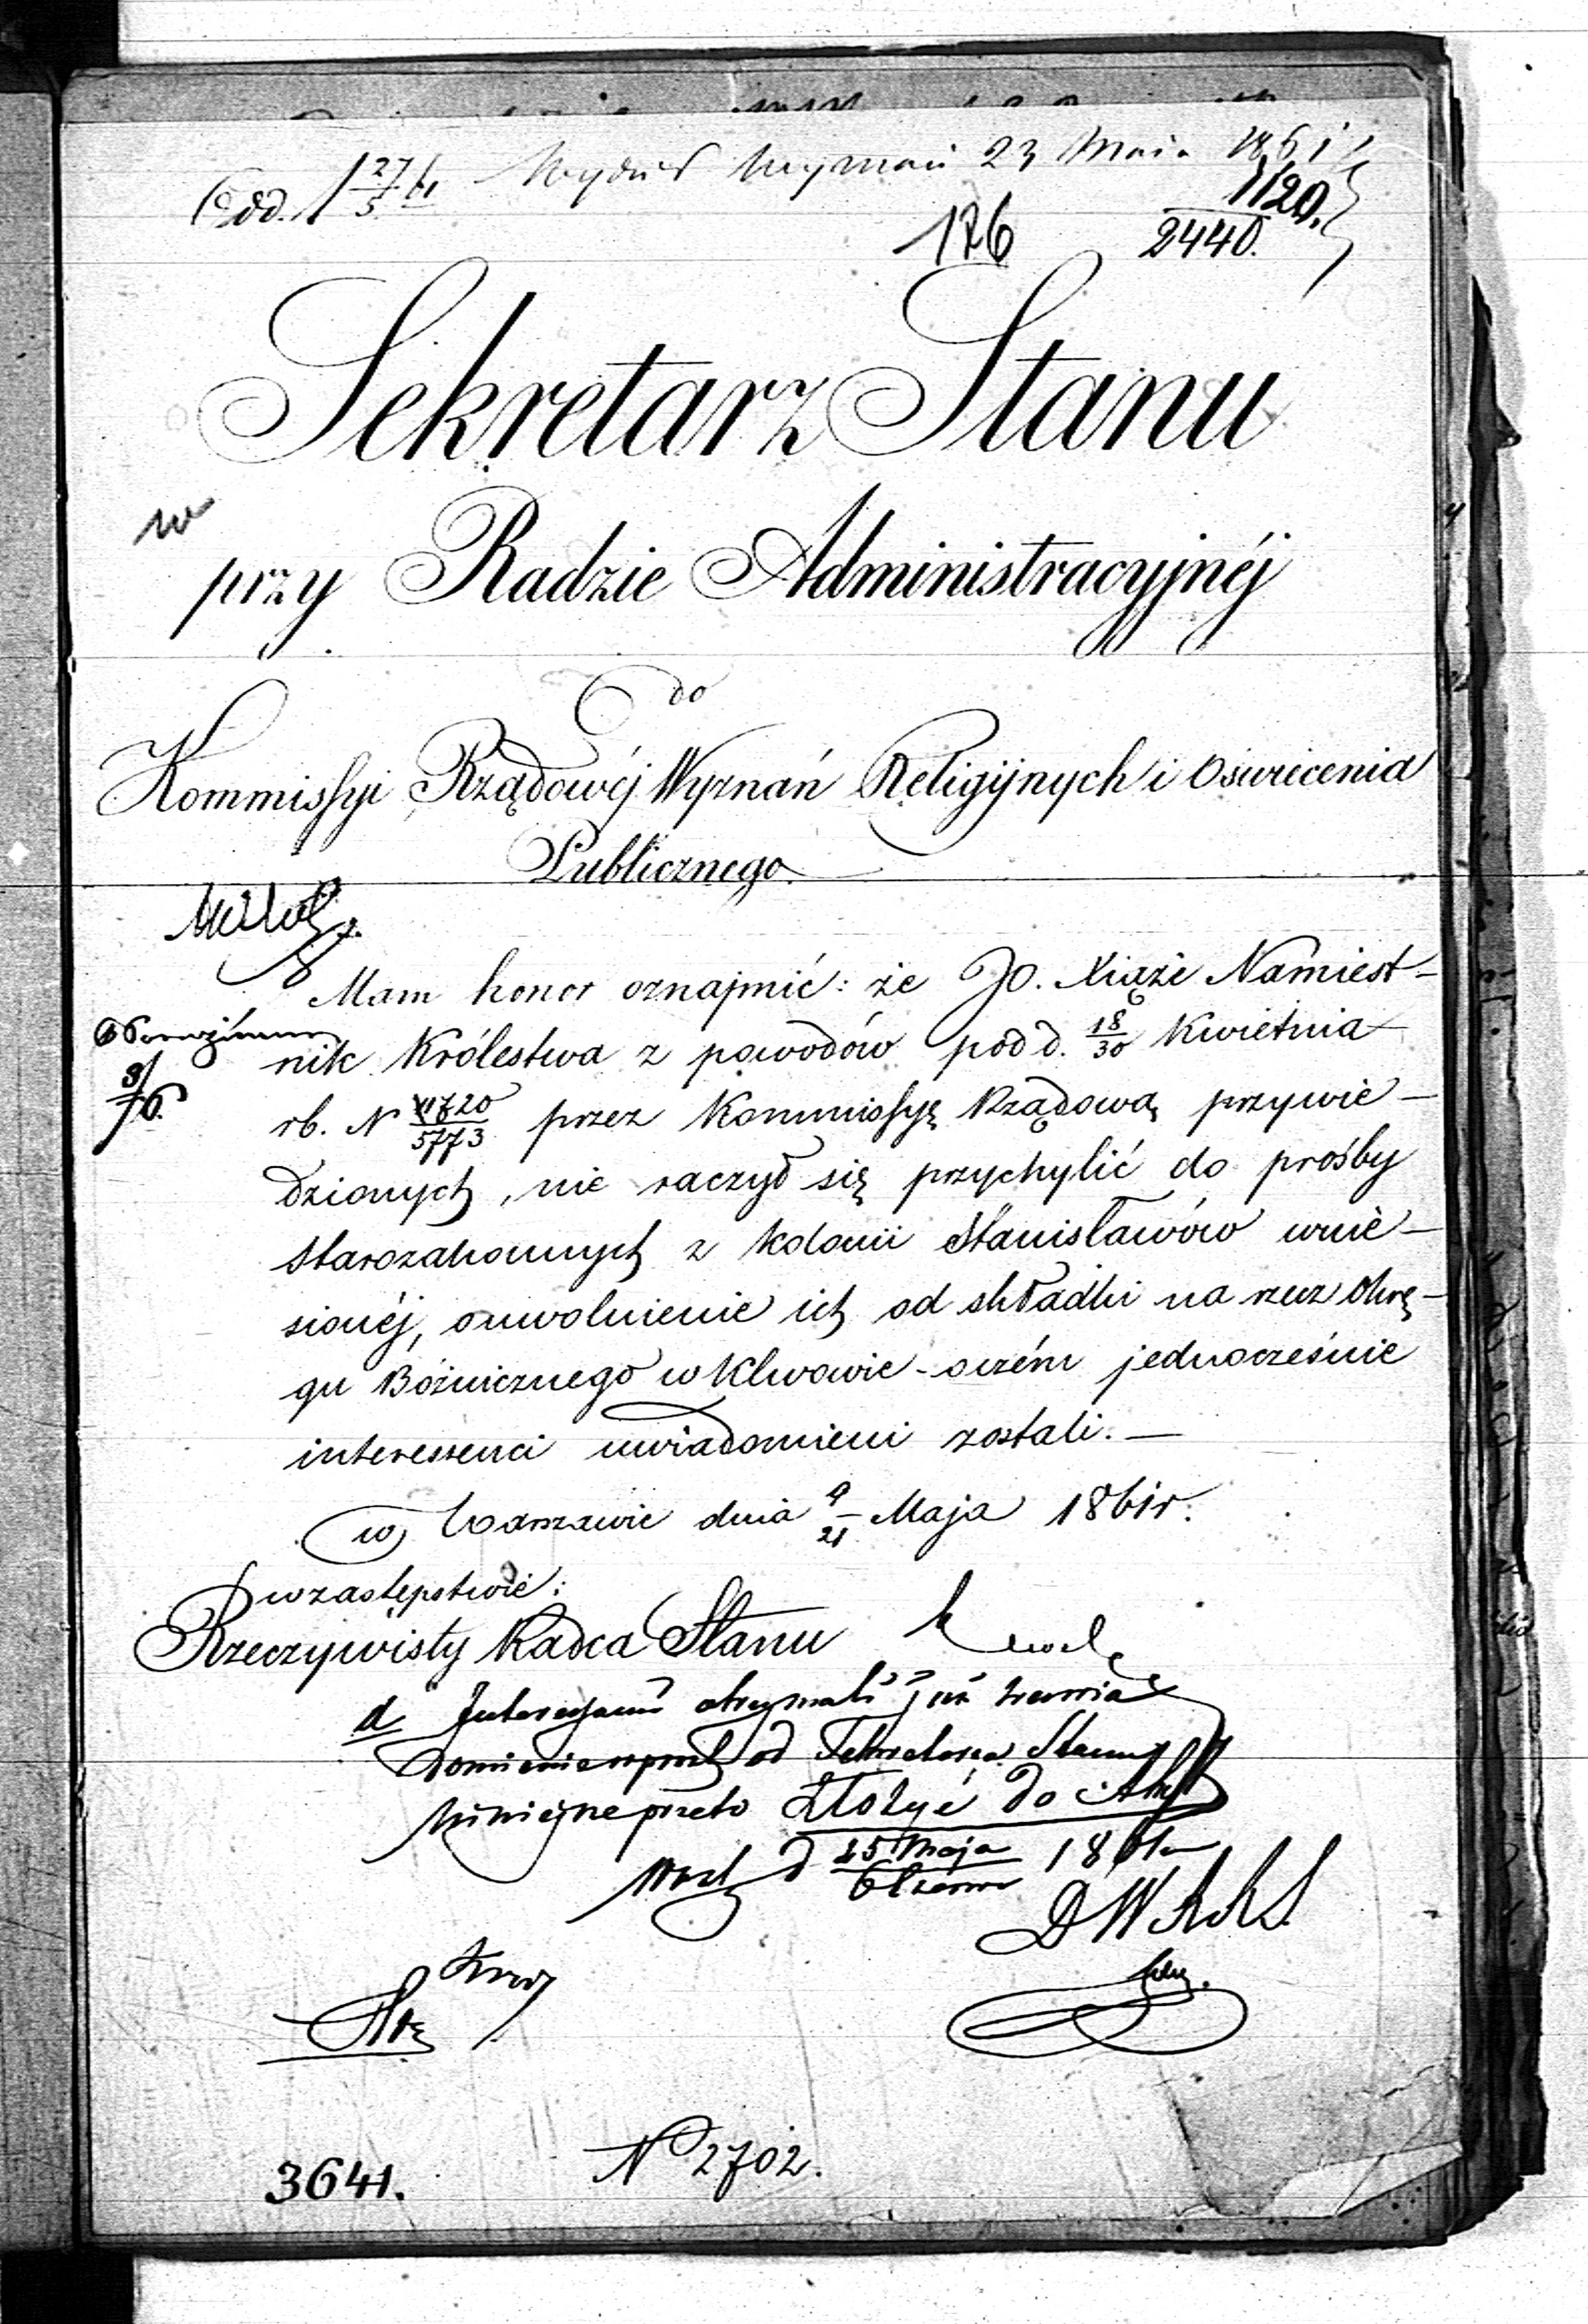 23 Maja 1861
1120.
176 2440.
Sekretarz Stanu
przy Radzie Administracyjnéj
do
Kommissyi Rządowéj Wyznań Religijnych i Oświecenia
Publicznego.
Mam honor oznajmić: że JO. Xiąże Namiest-
nik Królestwa z powodów pod d. 18/30 Kwietnia
rb. N 11720/5773 przez Kommissyę Rządową przywie-
dzionych, nie raczył się przychylić do prośby
Starozakonnych z kolonii Stanisławów wnie-
sionéj, o uwolnienie ich od składki na rzecz Okrę-
gu Bóżnicznego w Klwowie - o czém jednocześnie
interessenci uwiadomieni zostali. —
w Warszawie dnia 9/21 Maja 1861 r.
w zastępstwie:
Rzeczywisty Radca Stanu
otrzymali już zawia
domienie wprost od Sekretarza Stanu
niniejsze przeto Złożyć do Akt
d 25 Maja/6 Czerwca 1861 r
3641. N 2702.